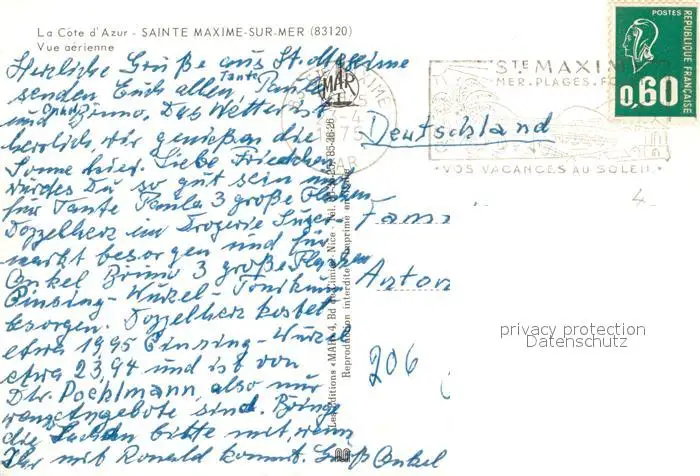 La Côte d'Azur - SAINTE MAXIME-SUR-MER (83120)
Vue aérienne
Herzliche Grüße aus St. Maxime
senden Euch allen, Tante Paula
und Onkel Bruno. Das Wetter ist
herrlich, wir genießen die
Sonne hier. Liebe
würdest Du so gut sein und
für Tante Paula 3 große Flaschen
Doppelherz im Drogerie Super
markt besorgen und für
Onkel Bruno 3 große Flaschen
Ginsing-Wurzel-Tonikum
besorgen. Doppelherz kostet
etwa 19,95 Ginsing-Wurzel
etwa 23,94 und ist von
Dr. Poehlmann, also nur
wenn Angebote sind. Bringe
die Sachen bitte mit, wenn
Ihr mit Ronald kommt. Gruß Onkel
MAR
Les Éditions «MAR»
Nice - Tél.
Reproduction interdite - Imprimé en
STE MAXIM
MER-PLAGES-
VOS VACANCES AU SOLEIL
POSTES
REPUBLIQUE FRANÇAISE
0,60
Deutschland
4
Fam
Anton
206
privacy protection
Datenschutz